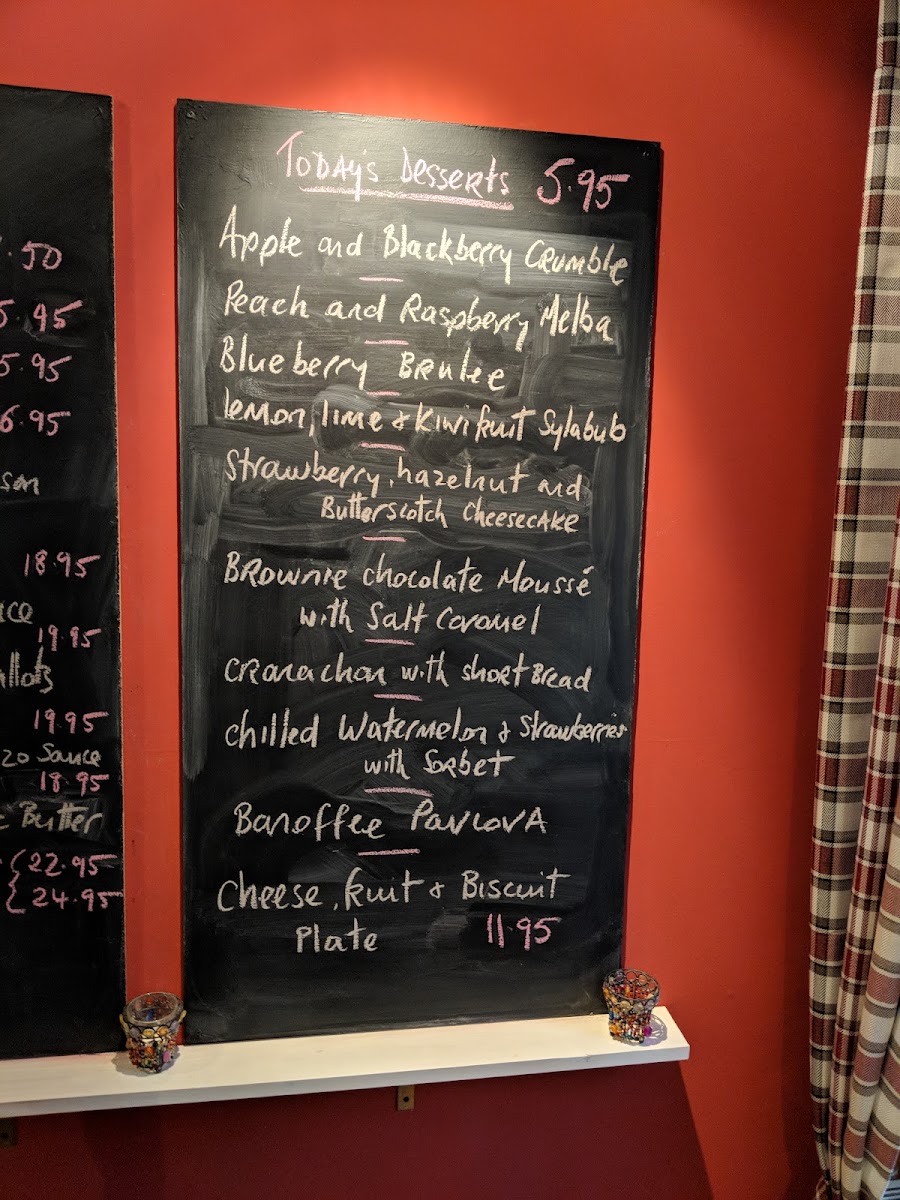 .50
5.95
5.95
6.95
son
18.95
19.95
19.95
Sauce
18.95
Butter
22.95
24.95
Today's Desserts 5.95
Apple and Blackberry Crumble
Peach and Raspberry Melba
Blueberry Brulee
lemon, lime & Kiwi fruit Sylabub
Strawberry, hazelnut and
Butterscotch Cheesecake
Brownie chocolate Moussé
with Salt Caramel
Cranachan with shortBread
chilled Watermelon & Strawberries
with Sorbet
Banoffee Pavlova
Cheese, fruit & Biscuit
Plate 11.95